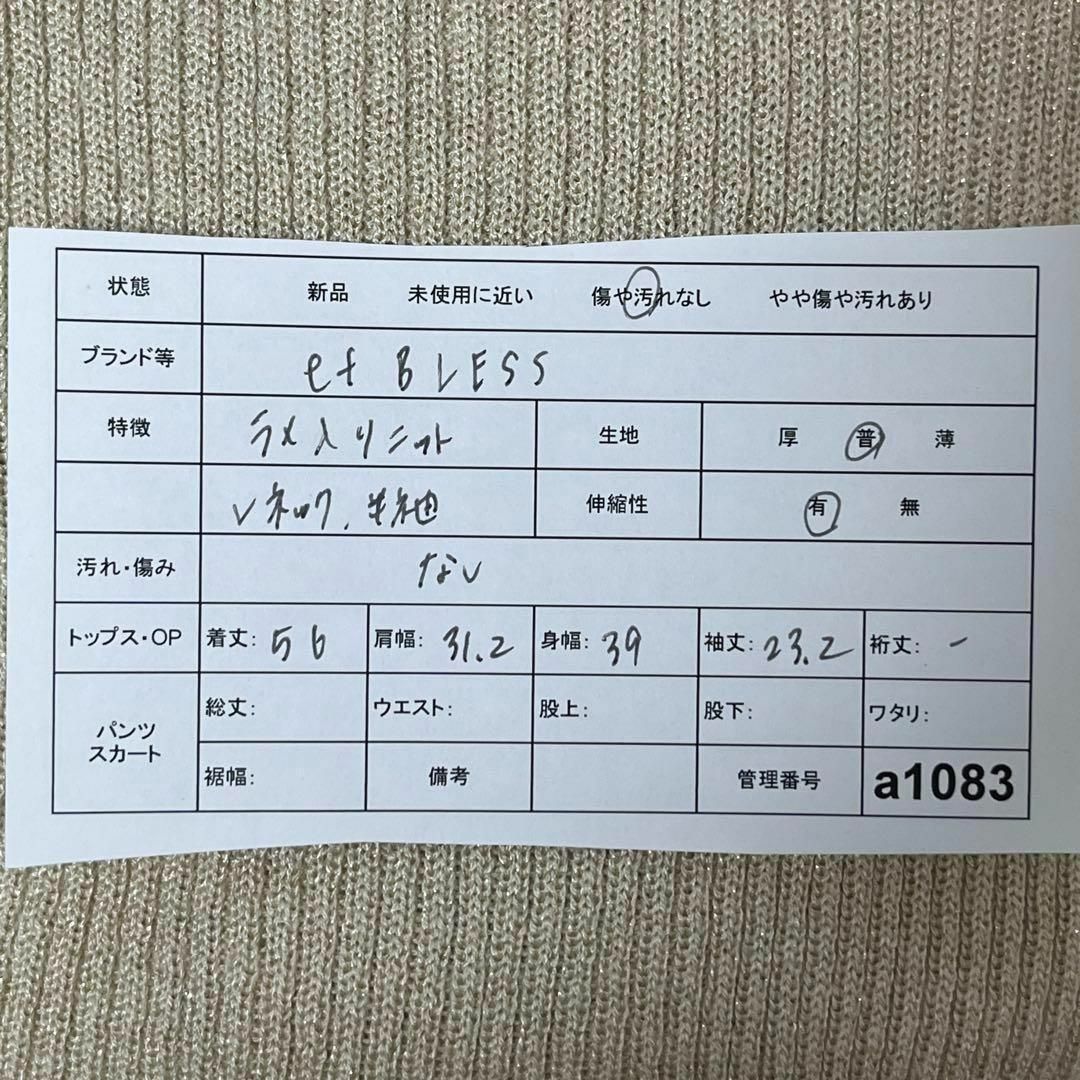 状態 新品 未使用に近い 傷や汚れなし やや傷や汚れあり
ブランド等 ef BLESS
特徴 ラメ入りニット 生地 厚 普 薄
Vネック、半袖 伸縮性 有 無
汚れ・傷み ない
トップス・OP 着丈: 56 肩幅: 31.2 身幅: 39 袖丈: 23.2 裄丈: -
パンツ スカート 総丈: ウエスト: 股上: 股下: ワタリ:
裾幅: 備考 管理番号 a1083